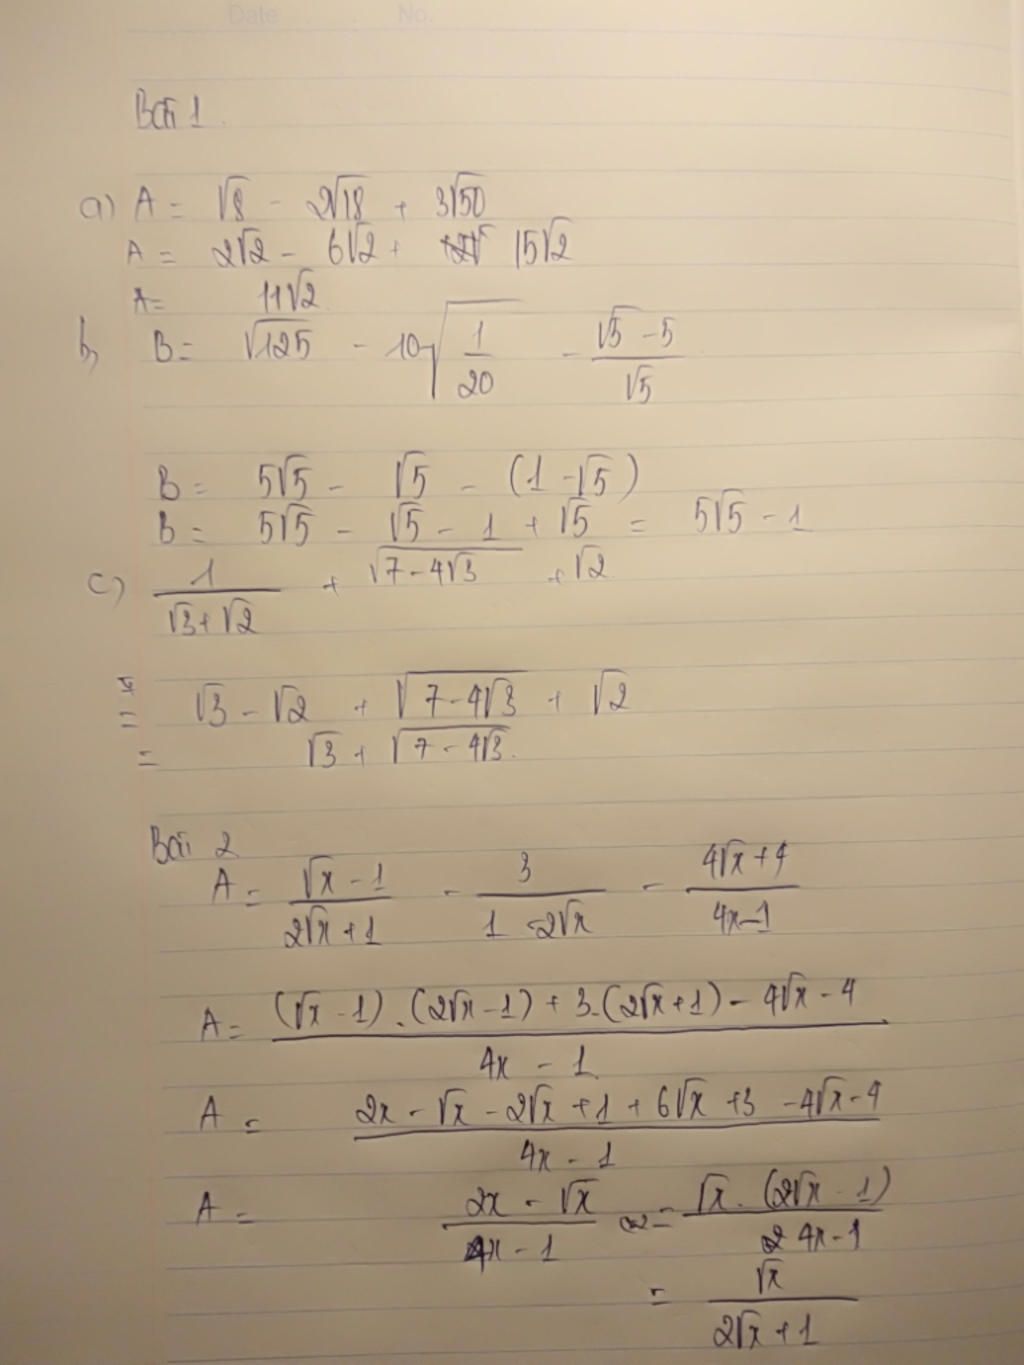 Date No.
Bài 1.
a) A = √8 - 2√18 + 3√50
A = 2√2 - 6√2 + 15√2
A = 11√2
b, B = √125 - 10√(1/20) - (√5 - 5)/√5
B = 5√5 - √5 - (1 - √5)
B = 5√5 - √5 - 1 + √5 = 5√5 - 1
c) 1/(√3 + √2) + √(7 - 4√3) + √2
= √3 - √2 + √(7 - 4√3) + √2
= √3 + √(7 - 4√3).
Bài 2
A = (√x - 1)/(2√x + 1) - 3/(1 - 2√x) - (4√x + 4)/(4x - 1)
A = ((√x - 1).(2√x - 1) + 3.(2√x + 1) - 4√x - 4)/(4x - 1)
A = (2x - √x - 2√x + 1 + 6√x + 3 - 4√x - 4)/(4x - 1)
A = (2x - √x)/(4x - 1) = (√x.(2√x - 1))/(4x - 1)
= √x/(2√x + 1)